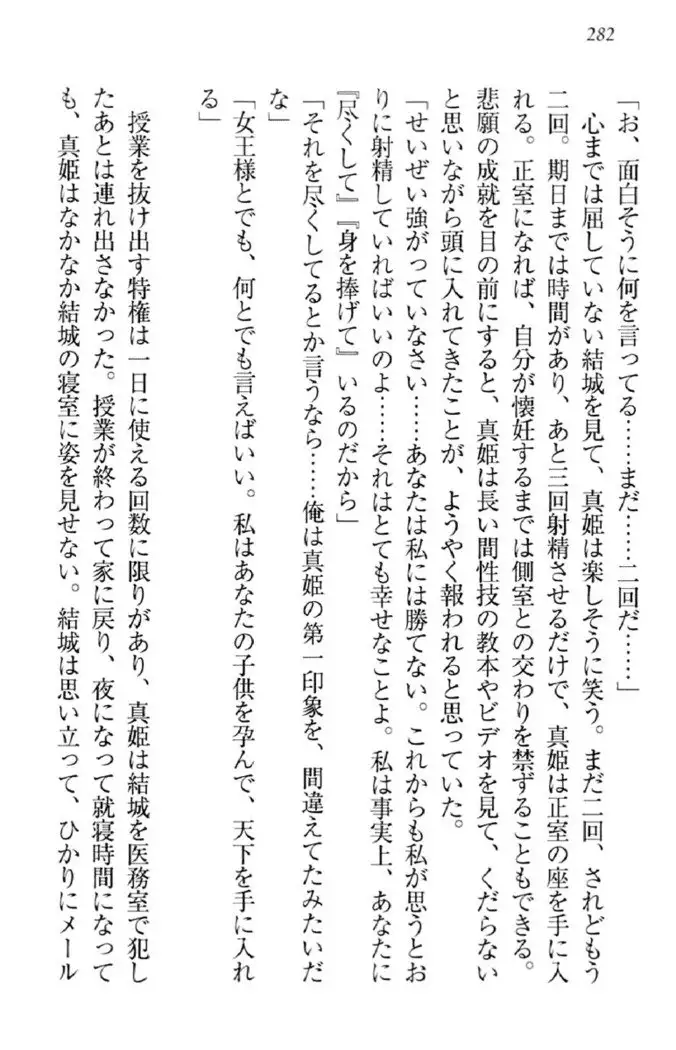 282
「お、面白そうに何を言ってる……まだ……二回だ……」
心までは屈していない結城を見て、真姫は楽しそうに笑う。まだ二回、されどもう
二回。期日までは時間があり、あと三回射精させるだけで、真姫は正室の座を手に入
れる。正室になれば、自分が懐妊するまでは側室との交わりを禁ずることもできる。
悲願の成就を目の前にすると、真姫は長い間性技の教本やビデオを見て、くだらない
と思いながら頭に入れてきたことが、ようやく報われると思っていた。
「せいぜい強がっていなさい……あなたは私には勝てない。これからも私が思うとお
りに射精していればいいのよ……それはとても幸せなことよ。私は事実上、あなたに
『尽くして』『身を捧げて』いるのだから」
「それを尽くしてるとか言うなら……俺は真姫の第一印象を、間違えてたみたいだ
な」
「女王様とでも、何とでも言えばいい。私はあなたの子供を孕んで、天下を手に入れ
る」
授業を抜け出す特権は一日に使える回数に限りがあり、真姫は結城を医務室で犯し
たあとは連れ出さなかった。授業が終わって家に戻り、夜になって就寝時間になって
も、真姫はなかなか結城の寝室に姿を見せない。結城は思い立って、ひかりにメール